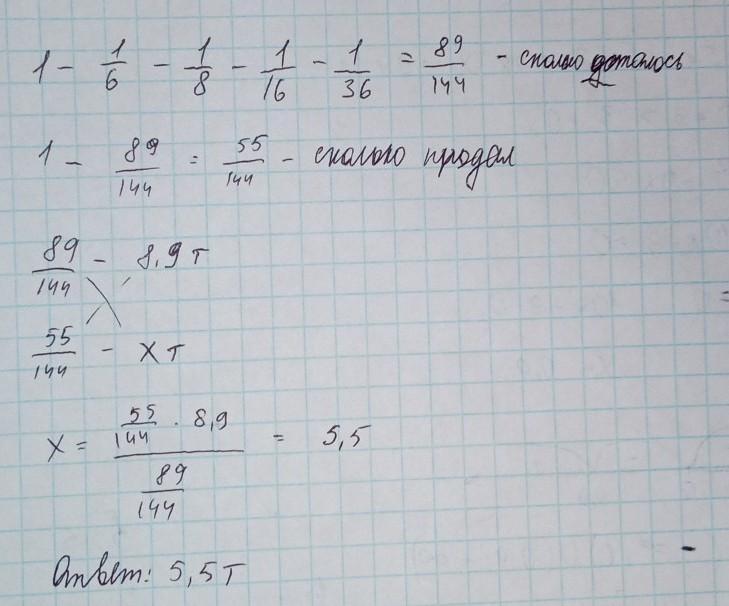 1 - 1/6 - 1/8 - 1/16 - 1/36 = 89/144 - сколько осталось
1 - 89/144 = 55/144 - сколько продал
89/144 - 8,9 т
55/144 - x т
x = (55/144 · 8,9)/(89/144) = 5,5
Ответ: 5,5 т